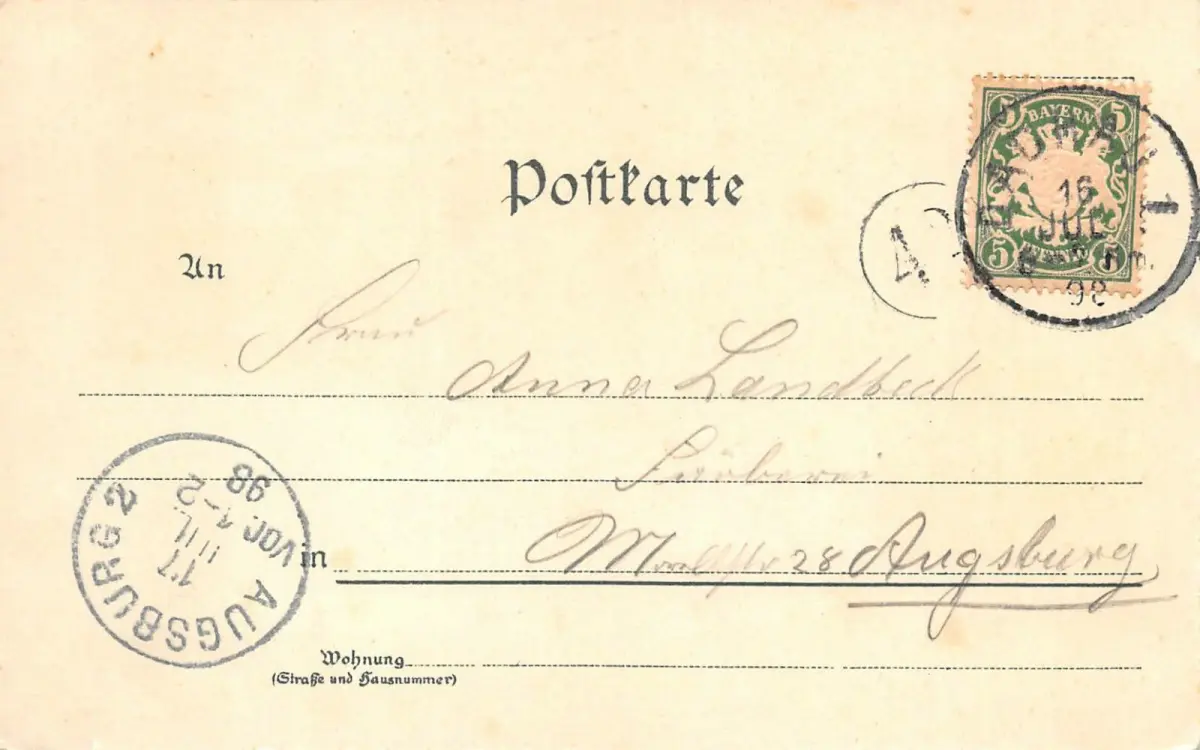 Postkarte
5 BAYERN 5
5 5
16
JUL
98
1
4
An
Frau
Anna Landbeck
Färberei
in
28 Augsburg
AUGSBURG 2
17
JUL
Vor. 1-2
98
Wohnung
(Straße und Hausnummer)